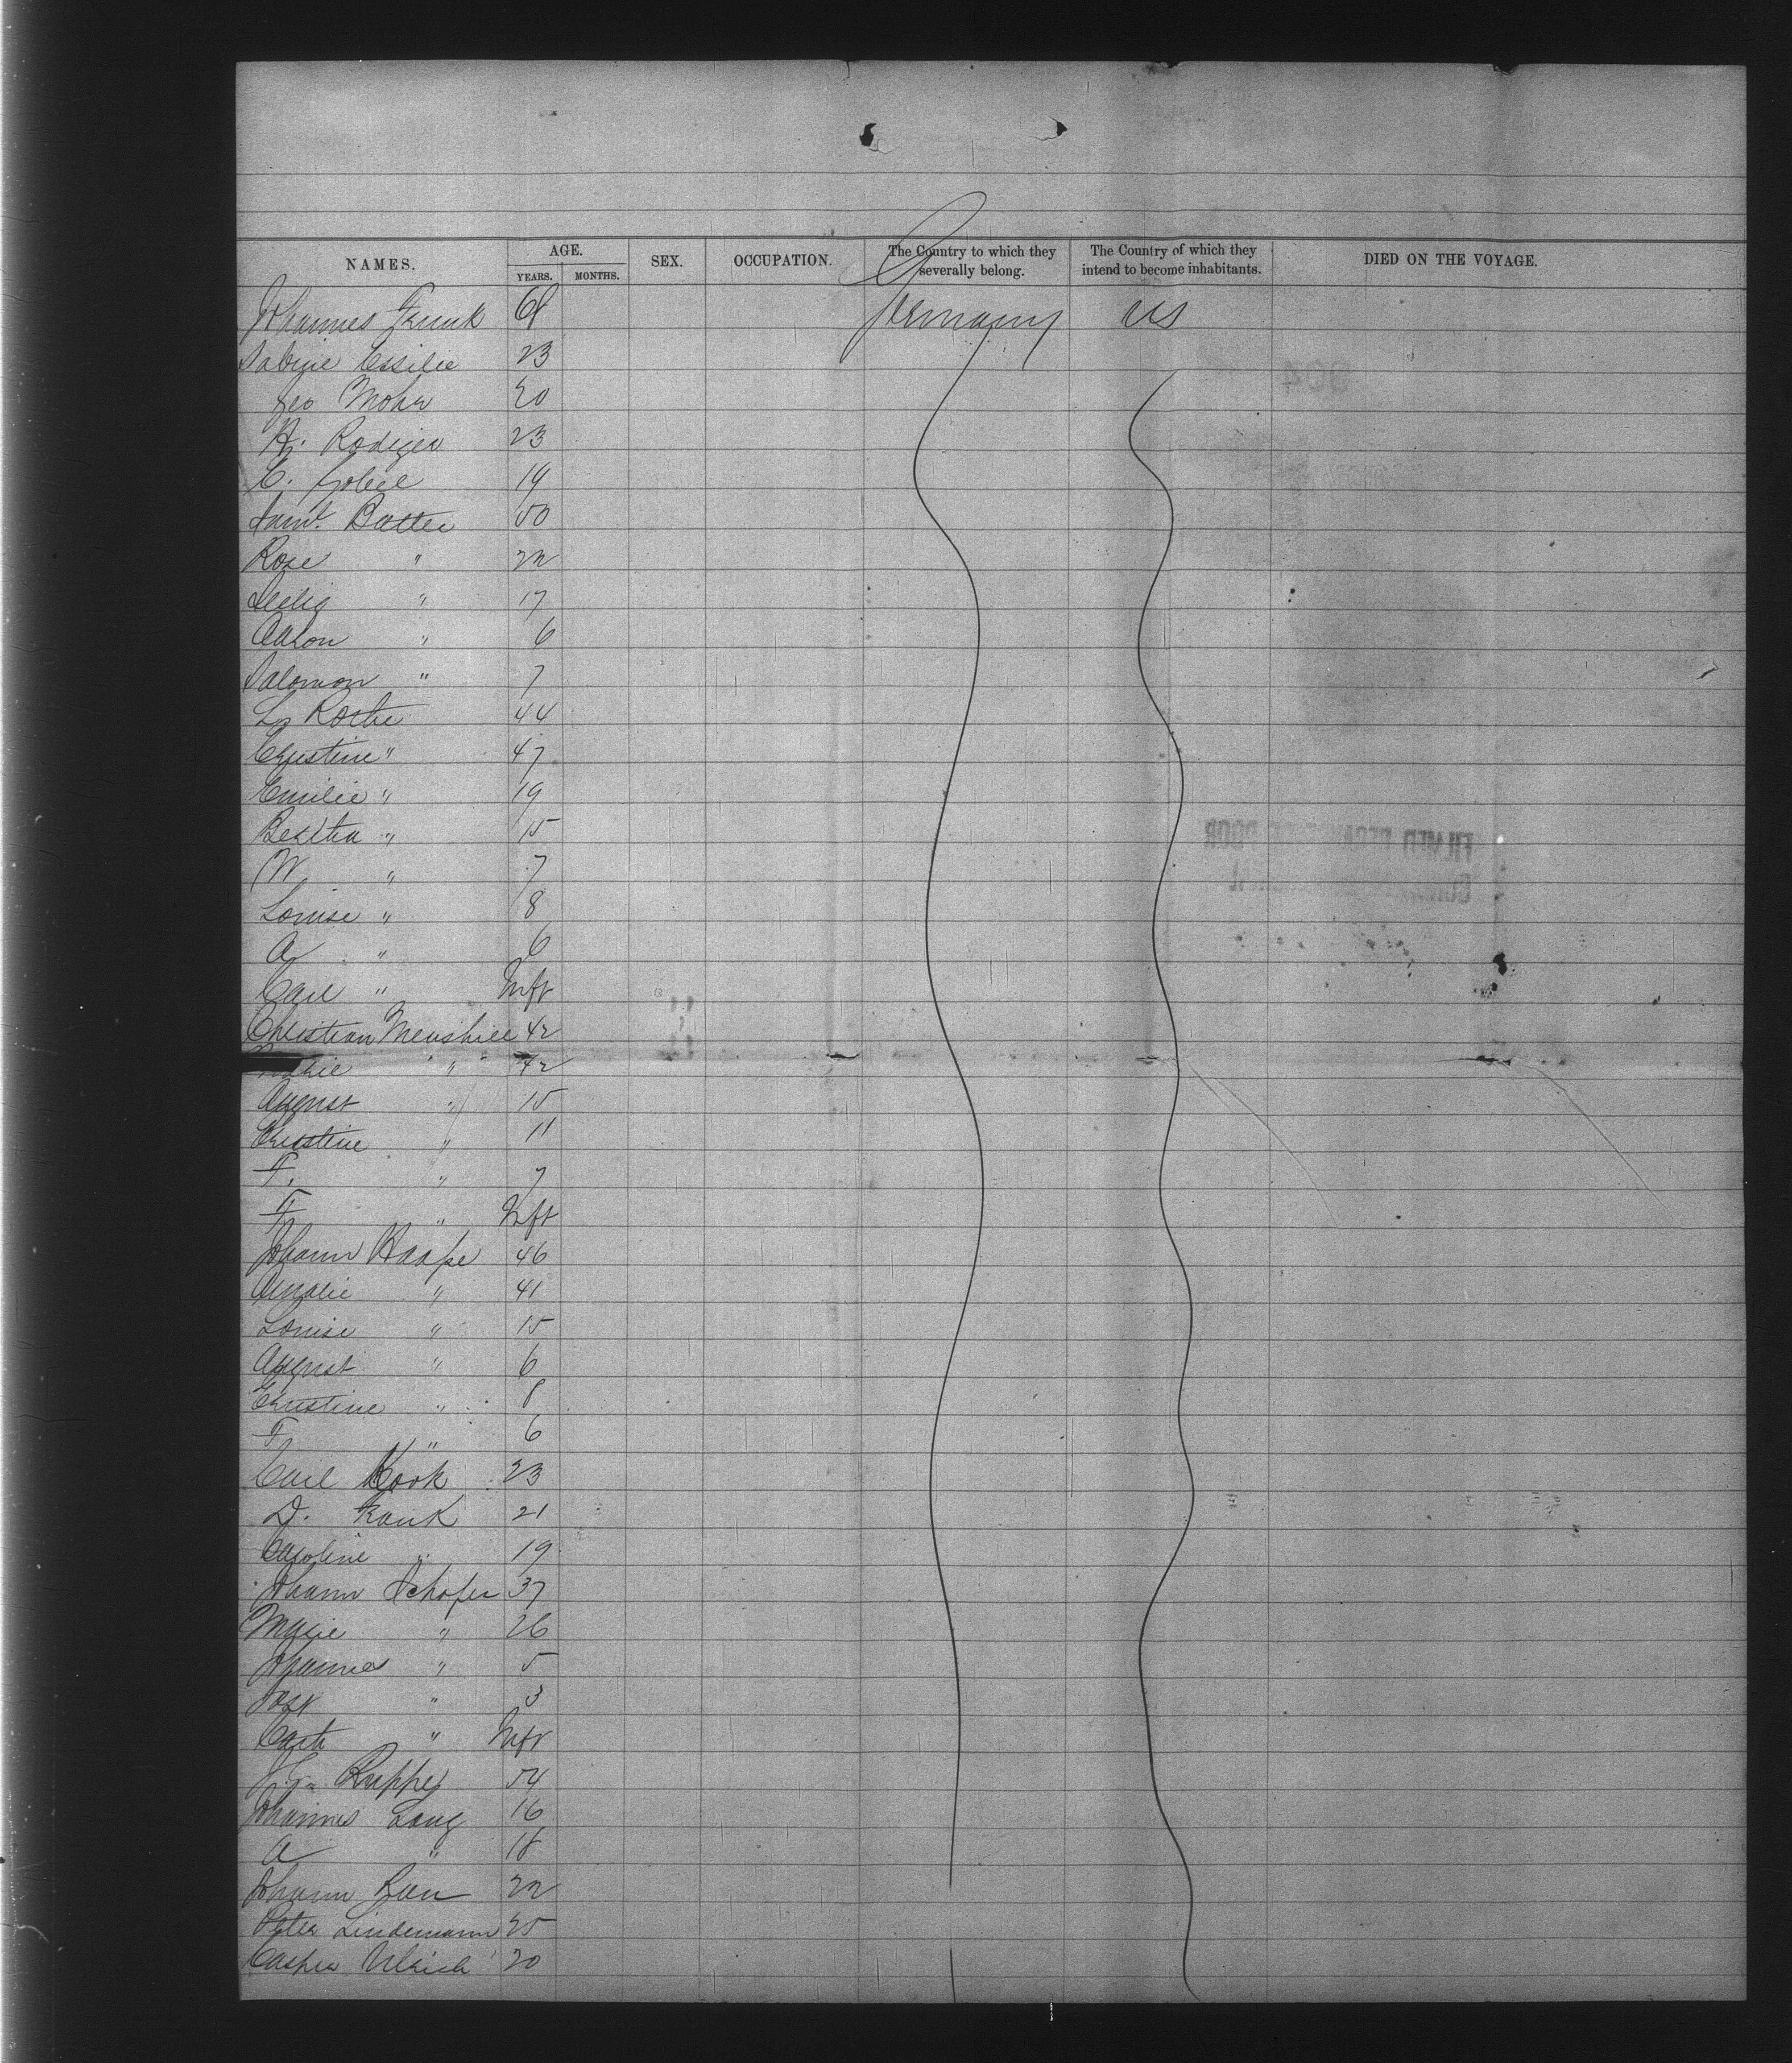 NAMES. AGE. YEARS. MONTHS. SEX. OCCUPATION. The Country to which they severally belong. The Country of which they intend to become inhabitants. DIED ON THE VOYAGE.
Johannes Frank 68 Germany US
Sabine 23
Geo Mohr 20
H. Rodiger 23
C. Gobel 19
Saml. Batter 50
Rose " 22
Selig " 17
Aaron " 6
Salomon " 7
L. Rothe 44
Christine " 47
Emilie " 19
Bertha " 15
W " 7
Louise " 8
A " 6
Carl " Inft
Christian Menshill 42
" 42
August " 15
Christine " 11
F. " 7
F " Inft
Johann Haape 46
Amalie " 41
Louise " 15
August " 6
Christine " 8
F " 6
Carl Kook 23
D. Frank 21
Caroline " 19
Johann Schofer 37
Marie " 26
Johannes " 5
Jost " 3
Cath " Inft
Ruppel 54
Johannes Lang 16
A " 18
Johann 22
Peter Lindemann 25
Casper Ulrich 20